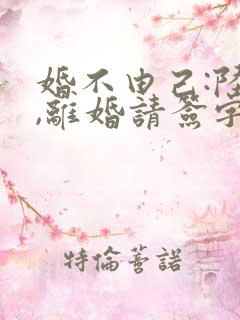 婚不由己:陸
,離婚請簽字
特倫蕾諾